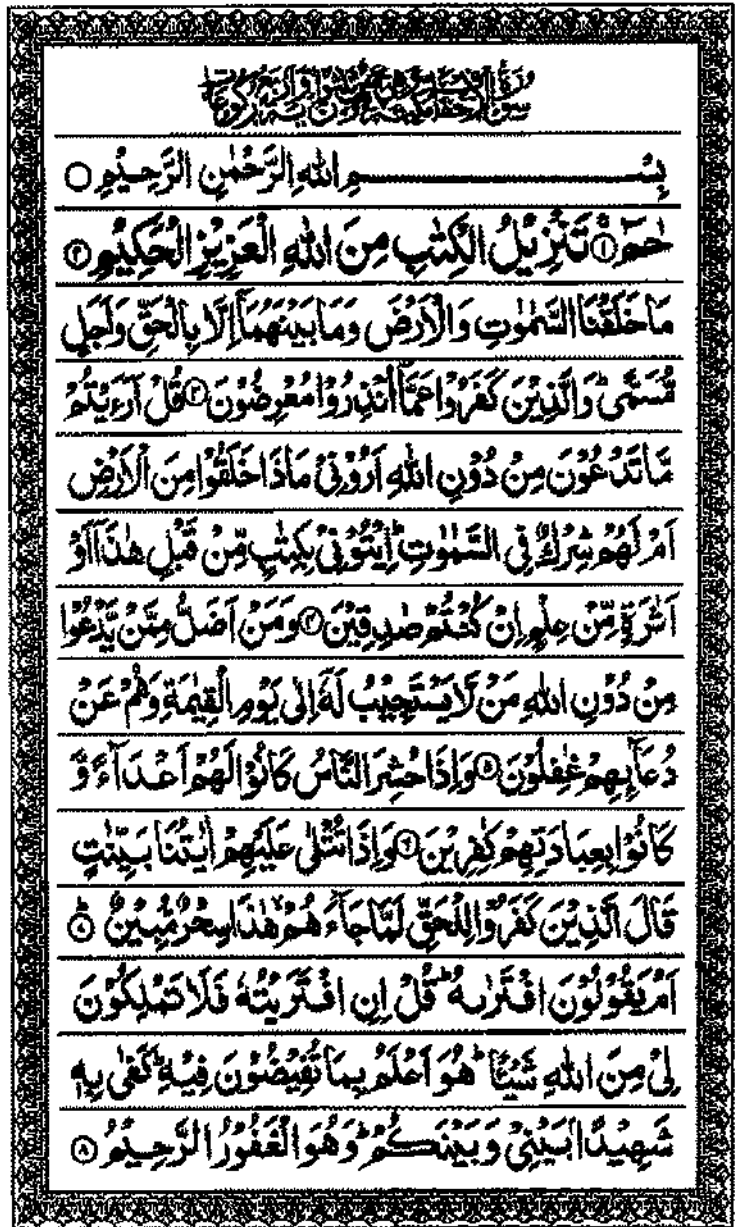 بِسْمِ اللهِ الرَّحْمٰنِ الرَّحِيْمِ ○
حٰمٓ ۚ﴿۱﴾ تَنْزِيْلُ الْكِتٰبِ مِنَ اللهِ الْعَزِيْزِ الْحَكِيْمِ ﴿۲﴾
مَا خَلَقْنَا السَّمٰوٰتِ وَالْاَرْضَ وَمَا بَيْنَهُمَآ اِلَّا بِالْحَقِّ وَاَجَلٍ
مُّسَمًّى ؕ وَالَّذِيْنَ كَفَرُوْا عَمَّآ اُنْذِرُوْا مُعْرِضُوْنَ ﴿۳﴾ قُلْ اَرَءَيْتُمْ
مَّا تَدْعُوْنَ مِنْ دُوْنِ اللهِ اَرُوْنِيْ مَاذَا خَلَقُوْا مِنَ الْاَرْضِ
اَمْ لَهُمْ شِرْكٌ فِي السَّمٰوٰتِ ؕ اِيْتُوْنِيْ بِكِتٰبٍ مِّنْ قَبْلِ هٰذَآ اَوْ
اَثٰرَةٍ مِّنْ عِلْمٍ اِنْ كُنْتُمْ صٰدِقِيْنَ ﴿۴﴾ وَمَنْ اَضَلُّ مِمَّنْ يَّدْعُوْا
مِنْ دُوْنِ اللهِ مَنْ لَّا يَسْتَجِيْبُ لَهٗٓ اِلٰى يَوْمِ الْقِيٰمَةِ وَهُمْ عَنْ
دُعَآئِهِمْ غٰفِلُوْنَ ﴿۵﴾ وَاِذَا حُشِرَ النَّاسُ كَانُوْا لَهُمْ اَعْدَآءً وَّ
كَانُوْا بِعِبَادَتِهِمْ كٰفِرِيْنَ ﴿۶﴾ وَاِذَا تُتْلٰى عَلَيْهِمْ اٰيٰتُنَا بَيِّنٰتٍ
قَالَ الَّذِيْنَ كَفَرُوْا لِلْحَقِّ لَمَّا جَآءَهُمْ ۙ هٰذَا سِحْرٌ مُّبِيْنٌ ؕ﴿۷﴾
اَمْ يَقُوْلُوْنَ افْتَرٰىهُ ؕ قُلْ اِنِ افْتَرَيْتُهٗ فَلَا تَمْلِكُوْنَ
لِيْ مِنَ اللهِ شَيْـًٔا ؕ هُوَ اَعْلَمُ بِمَا تُفِيْضُوْنَ فِيْهِ ؕ كَفٰى بِهٖ
شَهِيْدًۢا بَيْنِيْ وَبَيْنَكُمْ ؕ وَهُوَ الْغَفُوْرُ الرَّحِيْمُ ﴿۸﴾